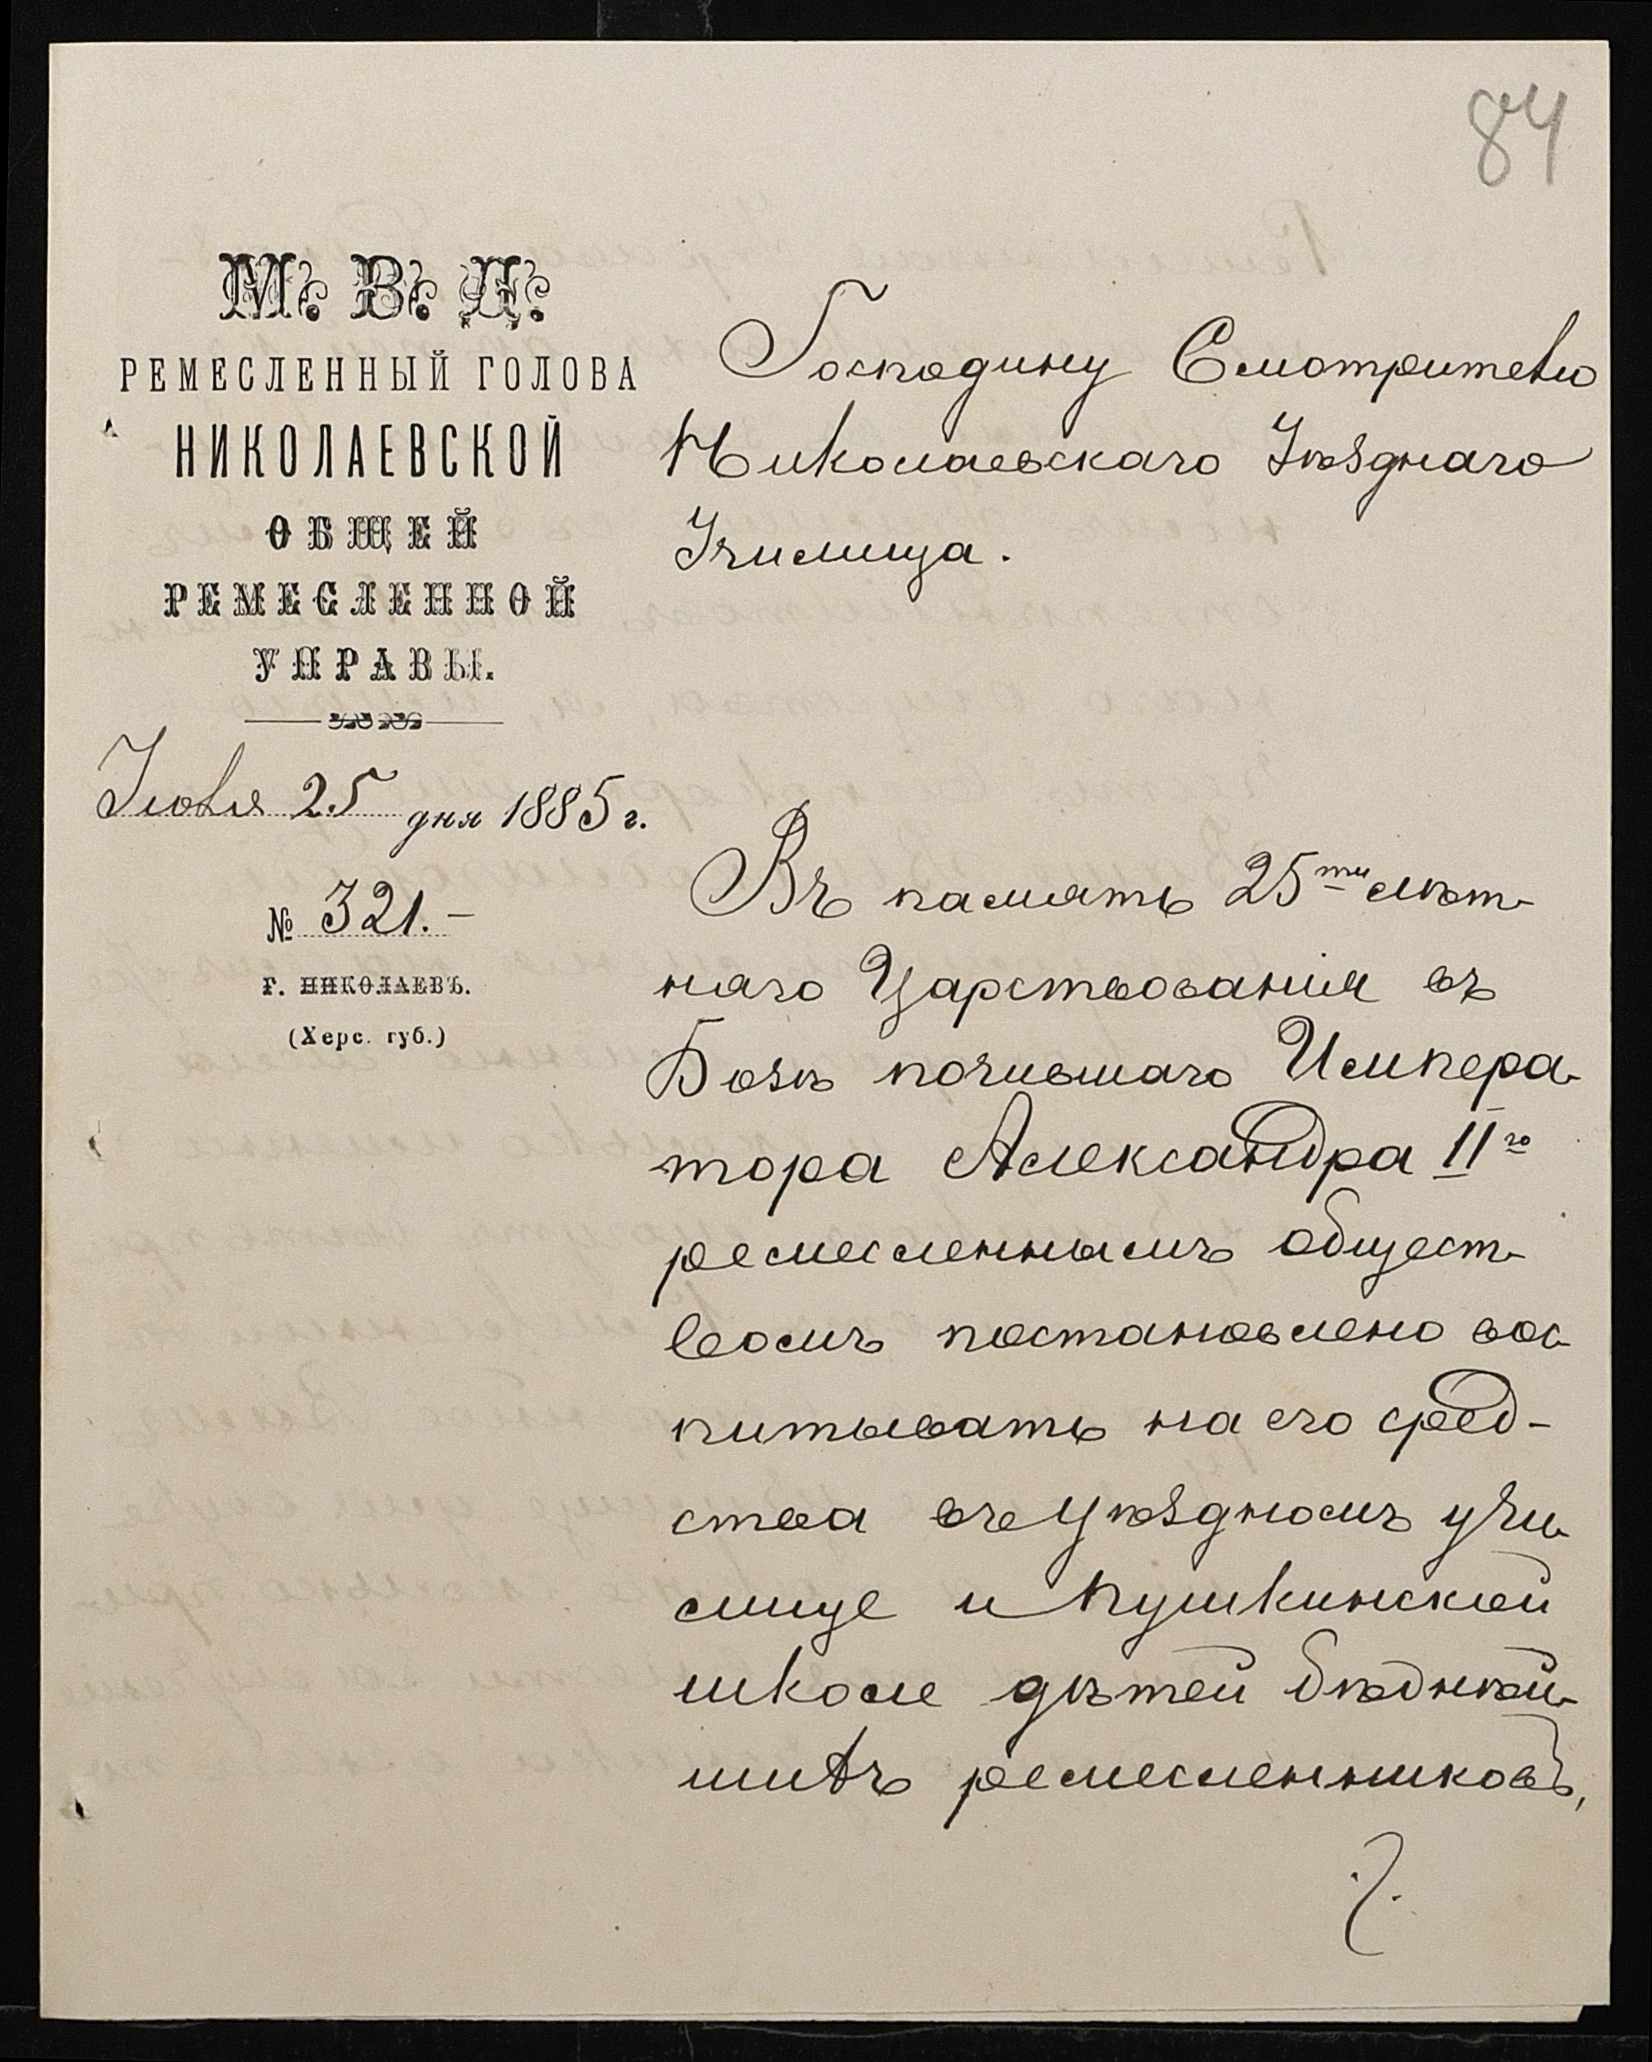 84
М. В. Д.
РЕМЕСЛЕННЫЙ ГОЛОВА
НИКОЛАЕВСКОЙ
ОБЩЕЙ
РЕМЕСЛЕННОЙ
УПРАВЫ.
Іюля 25 дня 1885 г.
№ 321.-
Г. НИКОЛАЕВЪ.
(Херс. губ.)
Господину Смотрителю
Николаевскаго Уѣзднаго
Училища.
Въ память 25ти лѣт-
няго Царствованія въ
Бозѣ почившаго Импера-
тора Александра II го
ремесленнымъ общест-
вомъ постановлено вос-
питывать на его сред-
ства въ Уѣздномъ учи-
лище и Пушкинской
школе дѣтей бѣднѣй-
шихъ ремесленниковъ,